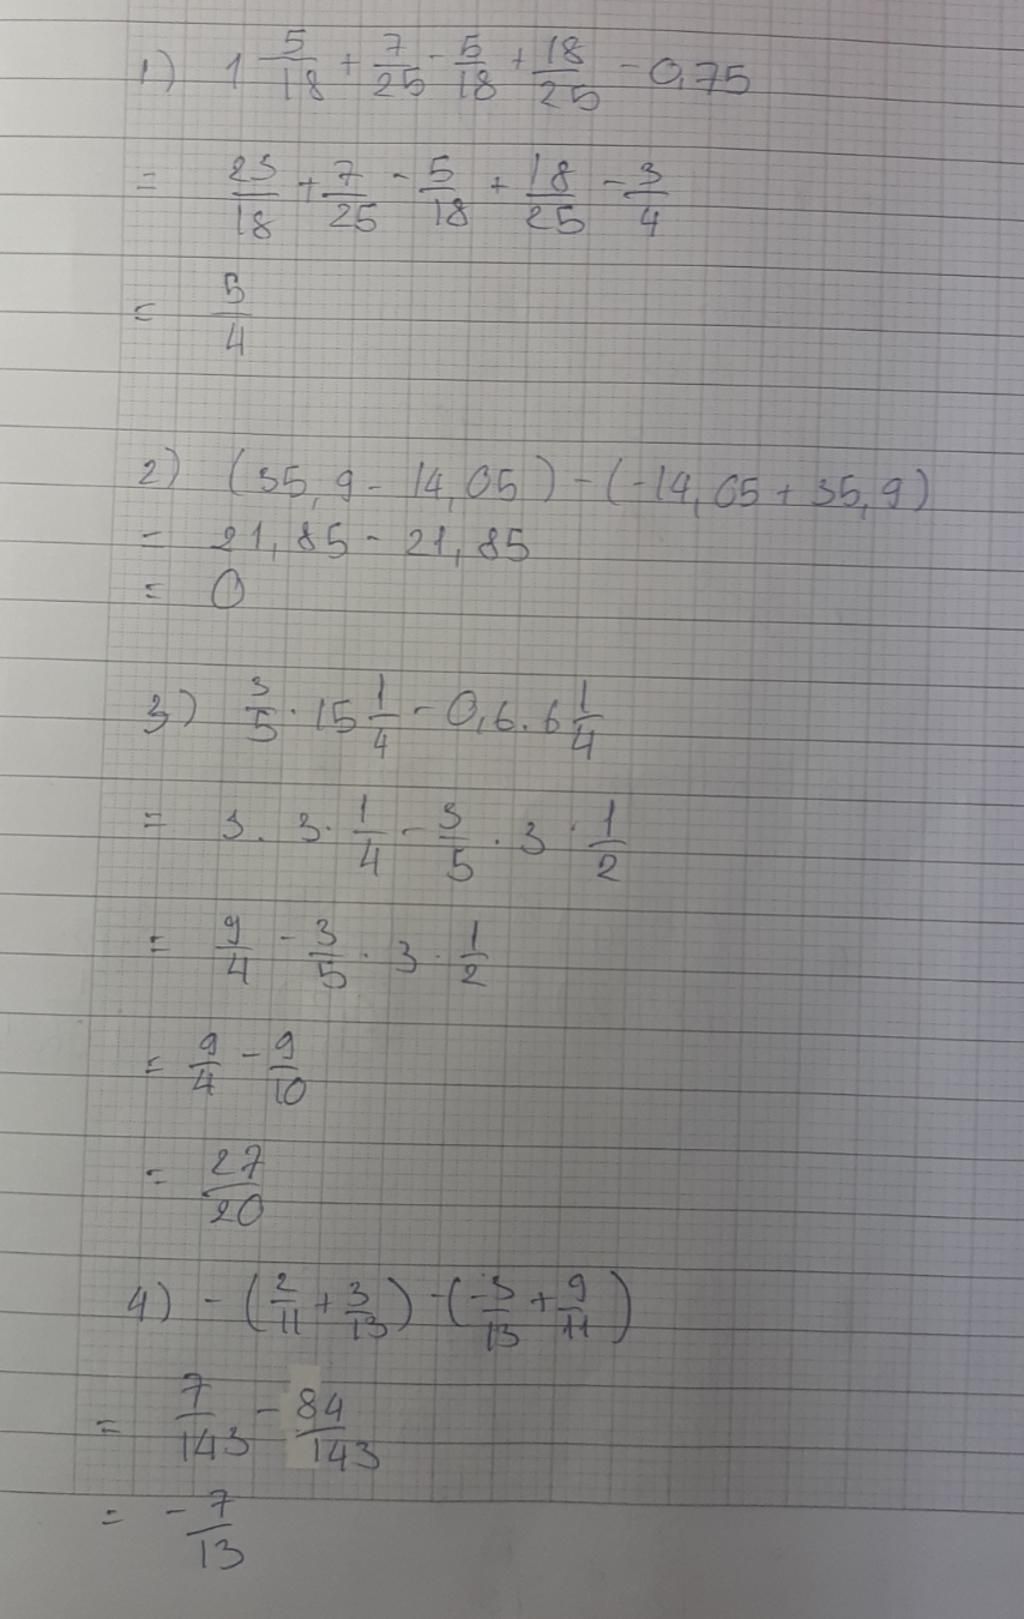 1) 1 5/18 + 7/25 - 5/18 + 18/25 - 0,75
= 23/18 + 7/25 - 5/18 + 18/25 - 3/4
= 5/4
2) (35,9 - 14,05) - (-14,05 + 35,9)
= 21,85 - 21,85
= 0
3) 3/5 . 15 1/4 - 0,6 . 6 1/4
= 3 . 3 . 1/4 - 3/5 . 3 . 1/2
= 9/4 - 3/5 . 3 . 1/2
= 9/4 - 9/10
= 27/20
4) - (2/11 + 3/13) - (-3/13 + 9/11)
= 7/143 - 84/143
= - 7/13